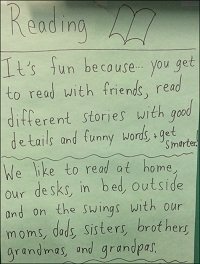 Reading
It's fun because... you get
to read with friends, read
different stories with good
details and funny words, + get
smarter!
We like to read at home,
our desks, in bed, outside
and on the swings with our
moms, dads, sisters, brothers,
grandmas, and grandpas.